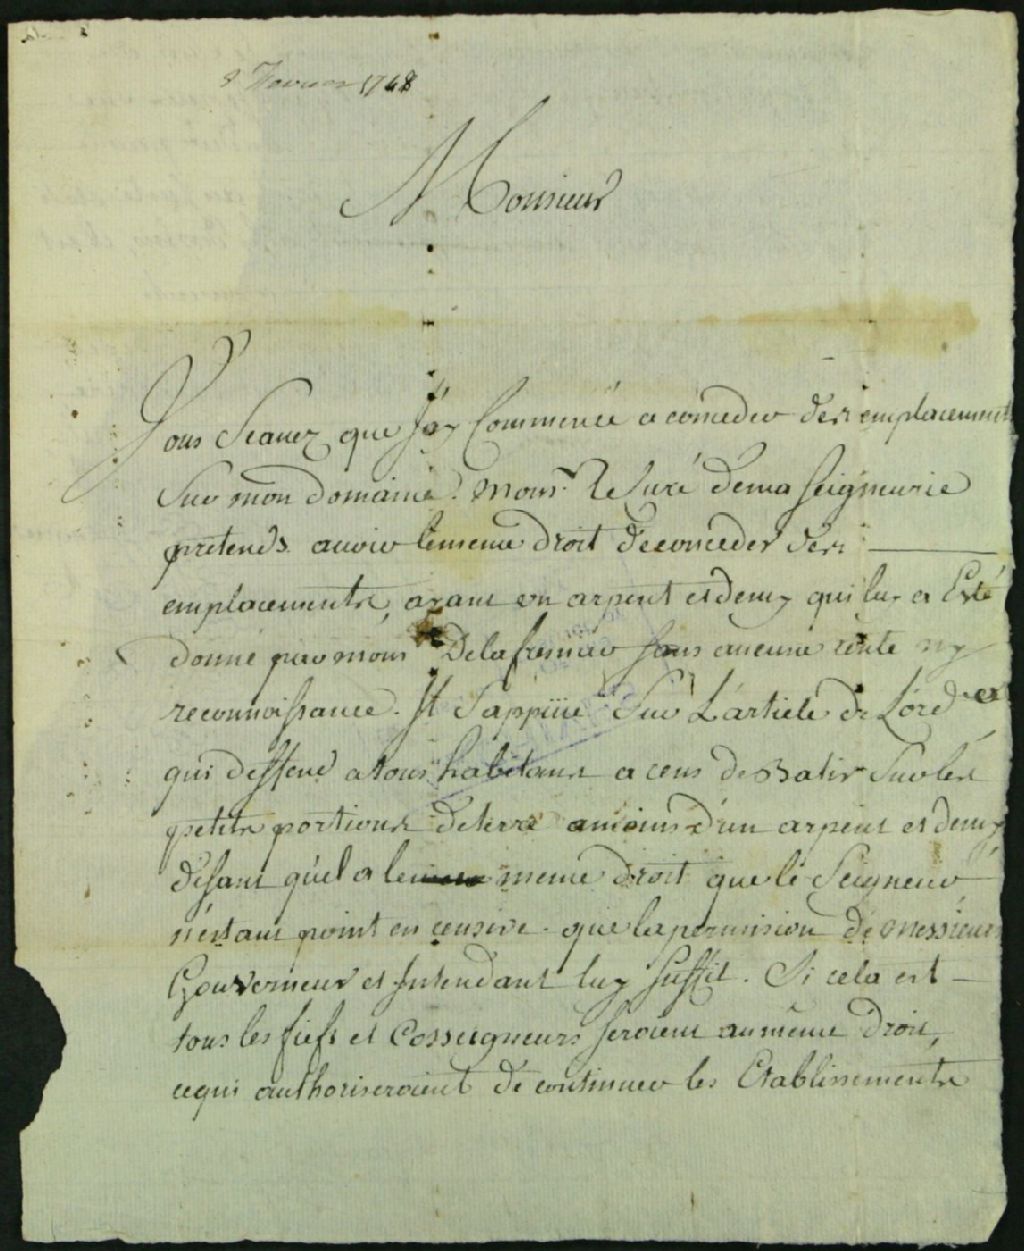 8 1748
Monsieur
Vous Scavez que J'ay Commencé a conceder des emplacements
Sur mon domaine. Mons.r Le Curé dema Seigneurie
pretends avoir lememe droit deconceder des
emplacements, ayant un arpent et demy qui luy a Esté
donné par mons.r Delafresniere sans aucune rente ny
reconnoissance. Il S'appuie Sur L'article de L'ord.ce
qui deffend atous habitans a cens de Batir Surles
petites portions deterre amoins d'un arpent et demy
disant qu'il a le meme droit que le Seigneur
n'estant point en censive. que la permission de Messieurs
Gouverneur et Intendant luy Suffit. Si cela est
tous les fiefs et Cosseigneurs seroient au même Droit,
cequi authoriseroient de continuer les Etablissements